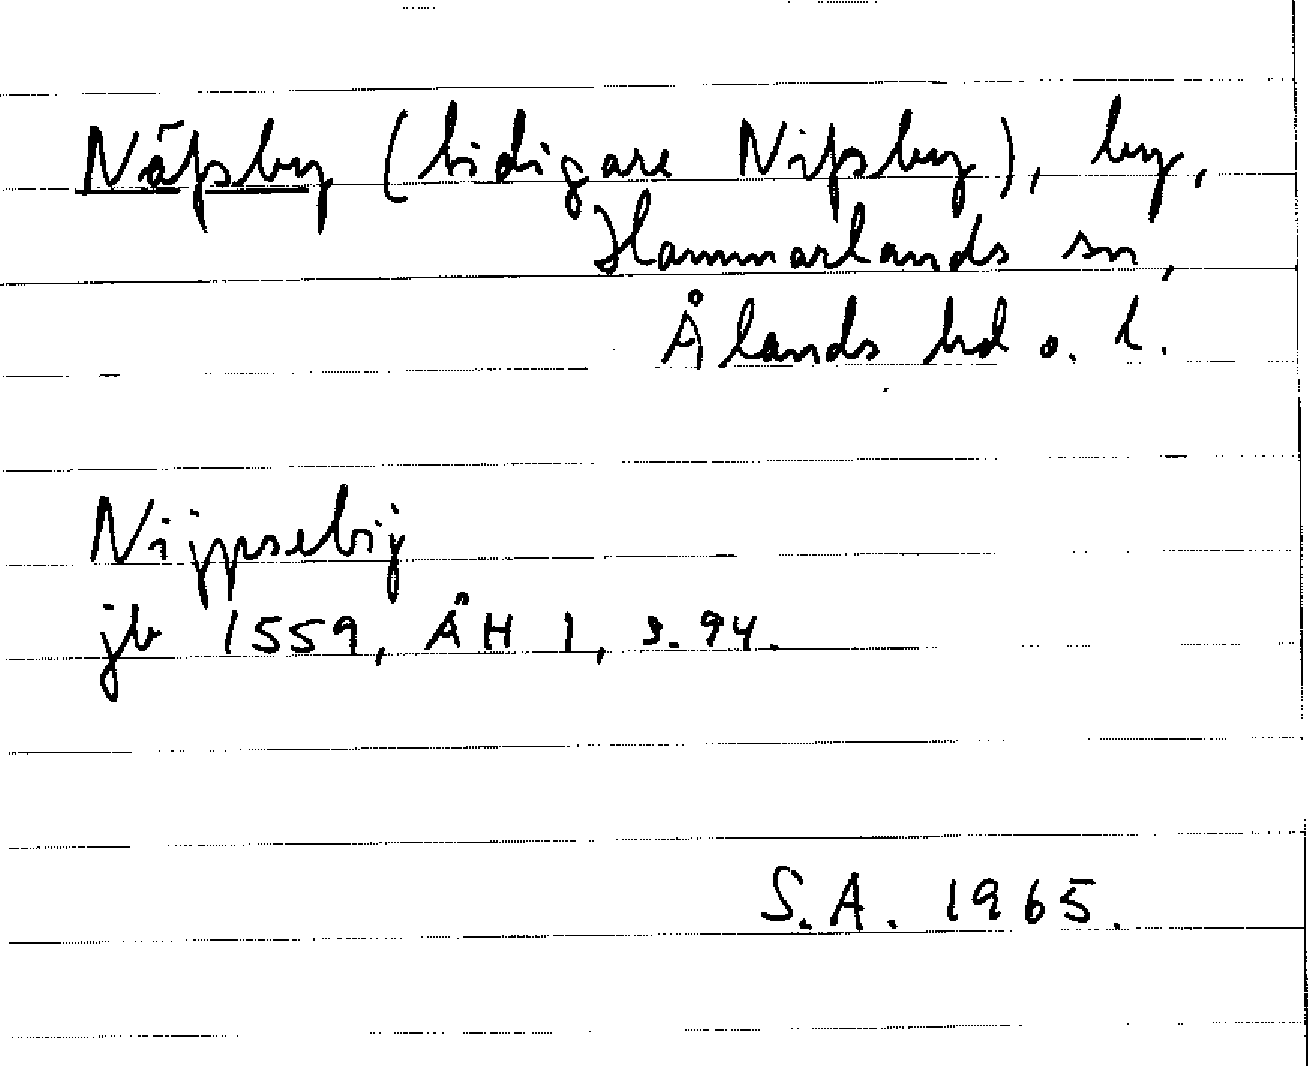 Näpsby (tidigare Nipsby), by,
Hammarlands sn,
Ålands hd o. l.
Nijpsebij
jb 1559, ÅH I, s. 94.
S.A. 1965.